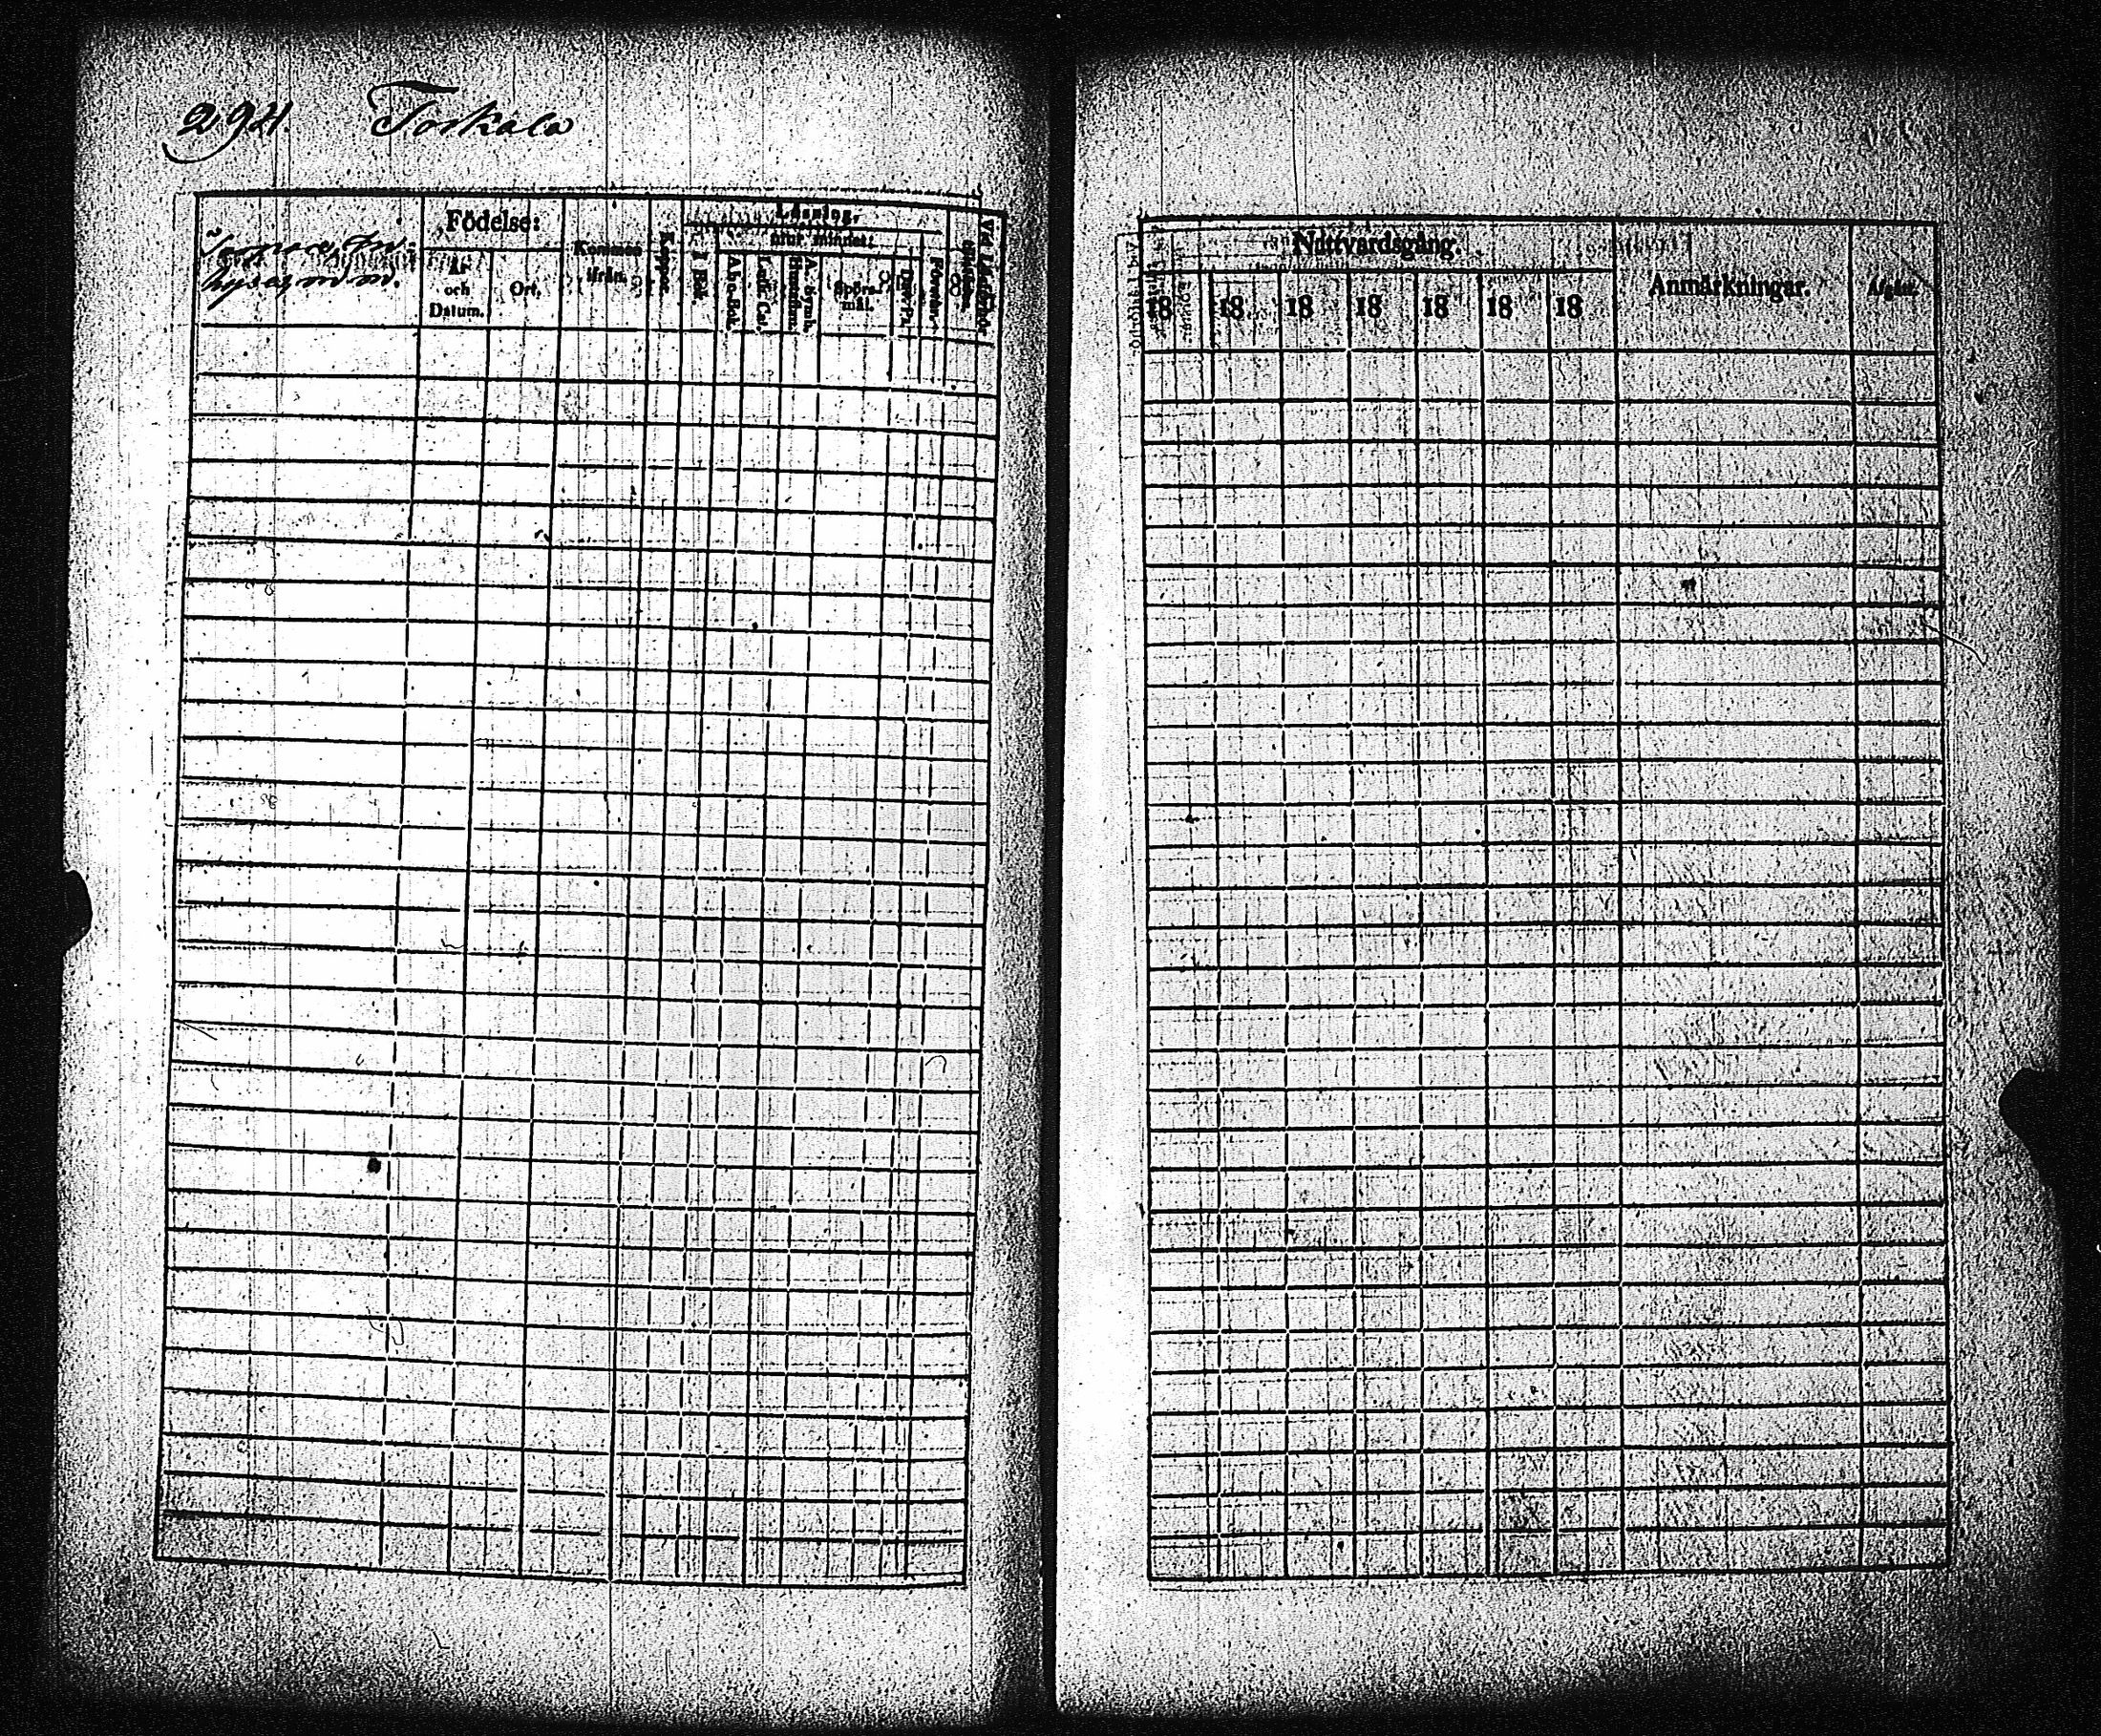 294. Torkala
Torpare, In-
hyses, m. m.
Födelse:
År
och
Datum.
Ort.
Kommen
ifrån.
Koppor.
Läsning,
I Bok.
utur minnet:
A.b.c.Bok.
Luth. Cat.
A. Symb.
Hustaflan.
Spörs-
mål.
Dav. Ps.
Förstår.
Vid Läsförhör
18
Nattvardsgång.
18 18 18 18 18 18 18
Anmärkningar.
Afgått.